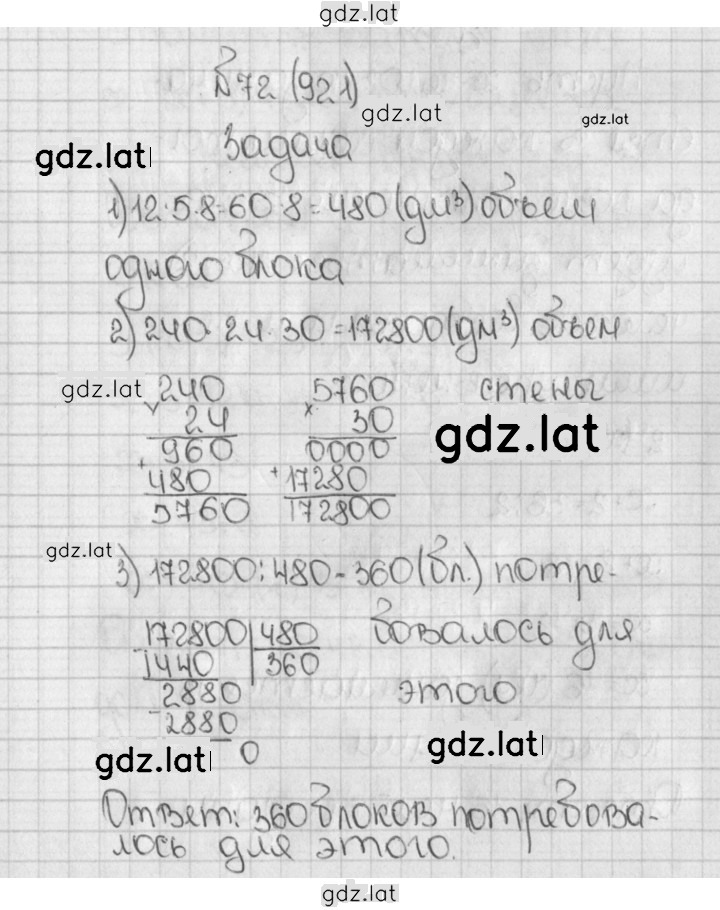 gdz.lat
№72 (921)
gdz.lat
gdz.lat
gdz.lat
Задача
1) 12·5·8=60·8=480(дм³) объем
одного блока
2) 240·24·30=172800(дм³) объем
стены
gdz.lat
240
× 24
960
+ 480
5760
5760
× 30
0000
+ 17280
172800
gdz.lat
gdz.lat
3) 172800:480=360(бл.) потре-
бовалось для
этого
172800 480
- 1440 360
2880
- 2880
0
gdz.lat
gdz.lat
Ответ: 360 блоков потребова-
лось для этого.
gdz.lat